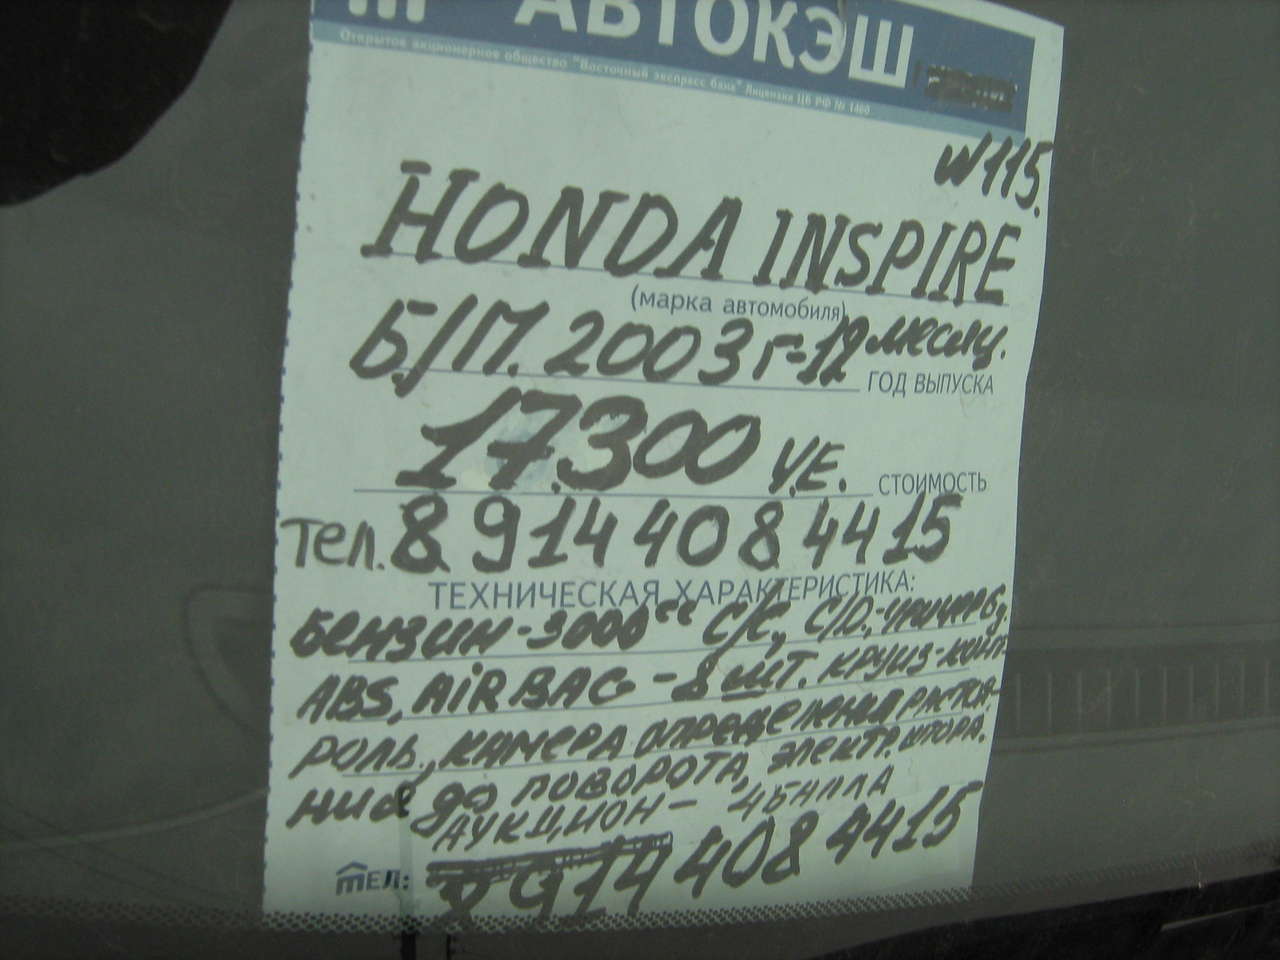 АВТОКЭШ
Открытое акционерное общество "Восточный экспресс банк" Лицензия ЦБ РФ № 1460
W115.
HONDA INSPIRE
(марка автомобиля)
Б/П. 2003 г-12 месяц.
ГОД ВЫПУСКА
17.300 У.Е.
СТОИМОСТЬ
тел. 8 914 408 44 15
ТЕХНИЧЕСКАЯ ХАРАКТЕРИСТИКА:
БЕНЗИН-3000сс С/С, C/D,
ABS, AiRBAG - 8 шт. КРУИЗ-КОНТ
РОЛЬ, КАМЕРА ОПРЕДЕЛЕНИЯ РАСТОЯ-
НИЯ ДО ПОВОРОТА, ЭЛЕКТР. ШТОРА.
АУКЦИОН - 4 БАЛЛА
ТЕЛ: 8 914 408 4415